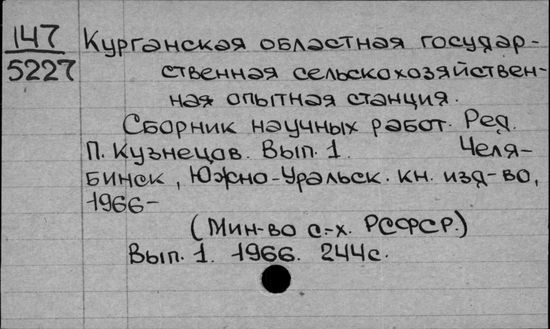 147
5227
Курганская областная государ-
ственная сельскохозяйствен-
ная опытная станция.
Сборник научных работ. Ред.
П. Кузнецов. Вып. 1. Челя-
бинск, Южно-Уральск. кн. изд-во,
1966-
(Мин-во с.-х. РСФСР.)
Вып. 1. 1966. 244с.